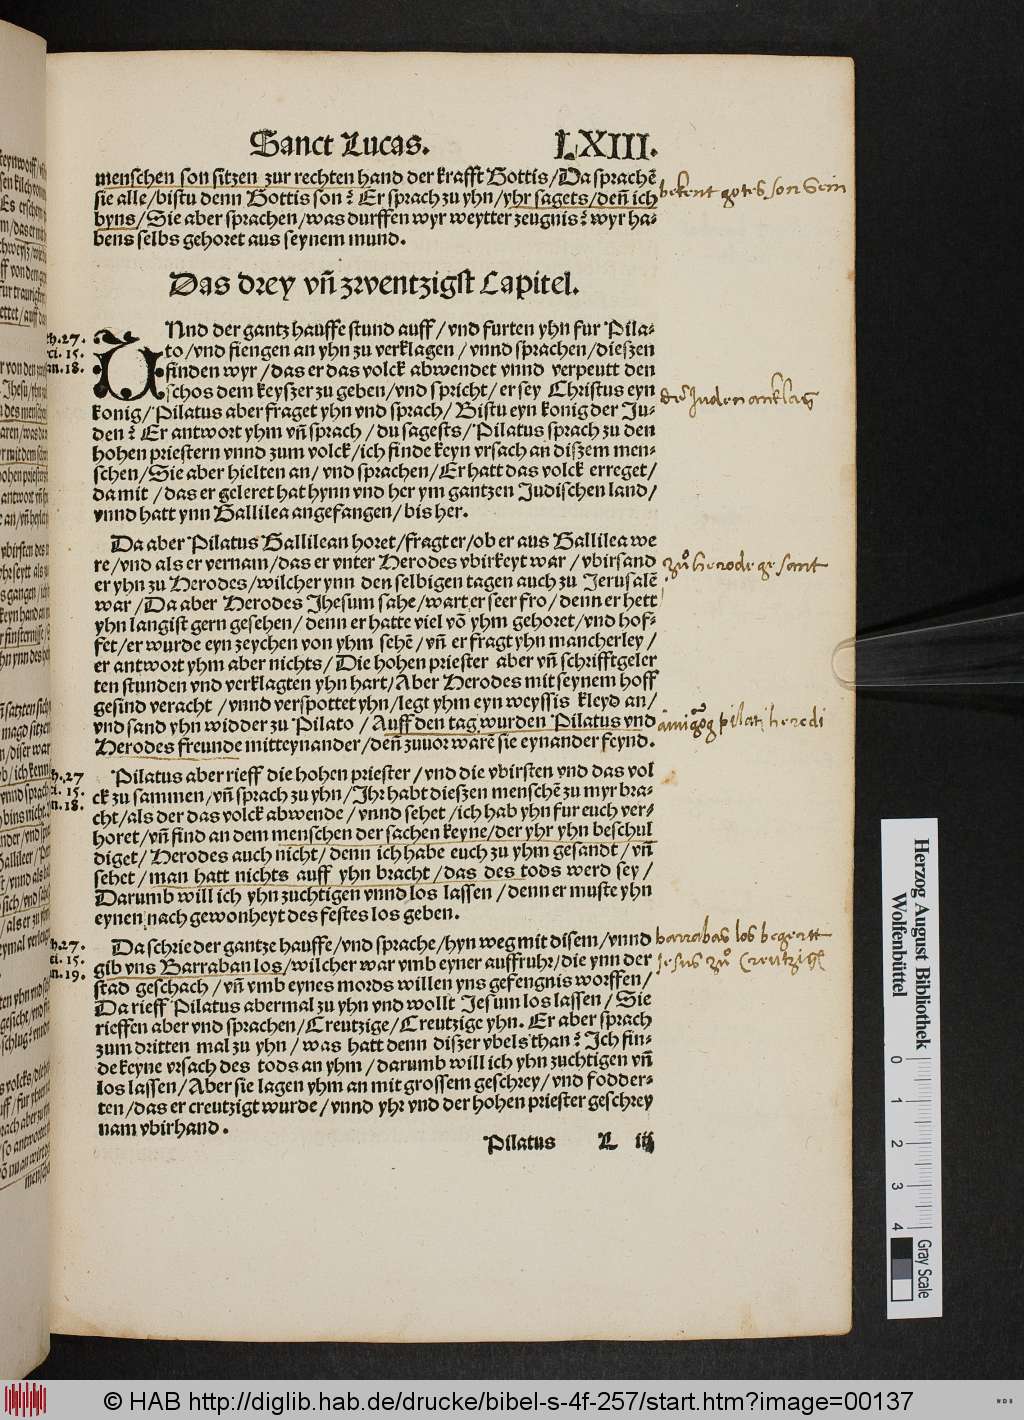 Sanct Lucas. LXIII.
menschen son sitzen zur rechten hand der krafft Gottis/Da sprachē
sie alle/bistu denn Gottis son? Er sprach zu yhn/yhr sagets/deñ ich
byns/Sie aber sprachen/was durffen wyr weytter zeugnis? wyr ha-
bens selbs gehoret aus seynem mund.
bekent gotes son sein
Das drey vñ zwentzigst Capitel.
VNnd der gantz hauffe stund auff/vnd furten yhn fur Pila-
to/vnd fiengen an yhn zu verklagen/vnnd sprachen/dieszen
finden wyr/das er das volck abwendet vnnd verpeutt den
schos dem keyszer zu geben/vnd spricht/er sey Christus eyn
konig/Pilatus aber fraget yhn vnd sprach/Bistu eyn konig der Ju-
den? Er antwort yhm vñ sprach/du sagests/Pilatus sprach zu den
hohen priestern vnnd zum volck/ich finde keyn vrsach an diszem men-
schen/Sie aber hielten an/vnd sprachen/Er hatt das volck erreget/
da mit/das er geleret hat hynn vnd her ym gantzen Judischen land/
vnnd hatt ynn Gallilea angefangen/bis her.
h.27.
15.
18.
Juden anklag
Da aber Pilatus Gallilean horet/fragt er/ob er aus Gallilea we
re/vnd als er vernam/das er vnter Herodes vbirkeyt war/vbirsand
er yhn zu Herodes/wilcher ynn den selbigen tagen auch zu Jerusalē
war/Da aber Herodes Jhesum sahe/wart er seer fro/denn er hett
yhn langist gern gesehen/denn er hatte viel vō yhm gehoret/vnd hof-
fet/er wurde eyn zeychen von yhm sehē/vñ er fragt yhn mancherley/
er antwort yhm aber nichts/Die hohen priester aber vñ schrifftgeler
ten stunden vnd verklagten yhn hart/Aber Herodes mit seynem hoff
gesind veracht/vnnd verspottet yhn/legt yhm eyn weyssis kleyd an/
vnd sand yhn widder zu Pilato/Auff den tag wurden Pilatus vnd
Herodes freunde mitteynander/deñ zuvor warē sie eynander feynd.
zů herode gesant
pilati herodi
Pilatus aber rieff die hohen priester/vnd die vbirsten vnd das vol
ck zu sammen/vñ sprach zu yhn/Jhr habt dieszen menschē zu myr bra-
cht/als der das volck abwende/vnnd sehet/ich hab yhn fur euch ver-
horet/vñ find an dem menschen der sachen keyne/der yhr yhn beschul
diget/Herodes auch nicht/denn ich habe euch zu yhm gesandt/vñ
sehet/man hatt nichts auff yhn bracht/das des tods werd sey/
Darumb will ich yhn zuchtigen vnnd los lassen/denn er muste yhn
eynen nach gewonheyt des festes los geben.
h.27
15.
18.
Da schrie der gantze hauffe/vnd sprache/hyn weg mit disem/vnnd
gib vns Barraban los/wilcher war vmb eyner auffruhr/die ynn der
stad geschach/vñ vmb eynes mords willen yns gefengnis worffen/
Da rieff Pilatus abermal zu yhn vnd wollt Jesum los lassen/Sie
rieffen aber vnd sprachen/Creutzige/Creutzige yhn. Er aber sprach
zum dritten mal zu yhn/was hatt denn diszer vbels than? Ich fin-
de keyne vrsach des tods an yhm/darumb will ich yhn zuchtigen vñ
los lassen/Aber sie lagen yhm an mit grossem geschrey/vnd fodder-
ten/das er creutzigt wurde/vnnd yhr vnd der hohen priester geschrey
nam vbirhand.
h.27.
15.
19.
barrabas los begertt
Jesus zů
Pilatus L iij
Herzog August Bibliothek
Wolfenbüttel
0 1 2 3 4
Gray Scale
© HAB http://diglib.hab.de/drucke/bibel-s-4f-257/start.htm?image=00137